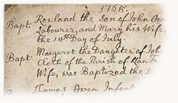 1708
Bapt. Rowland the Son of John Ow
Labourer, and Mary his Wife
the 14th Day of July
Bapt. Margaret the Daughter of Joh
Clerk of the Parish of Llan
Wife, was Baptized the
Thomas Owen Infan